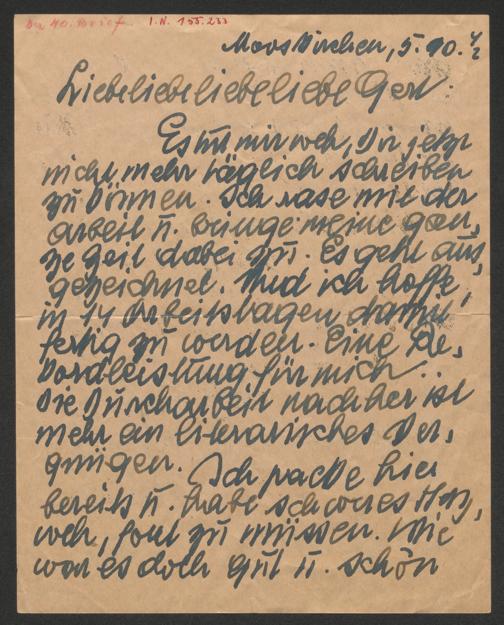 Zu 40. Brief I.N. 155.233
Mooskirchen, 5.10.42
Liebeliebeliebeliebe Gert:
Es tut mir weh, Dir jetzt
nicht mehr täglich schreiben
zu können. Ich rase mit der
Arbeit u. bringe meine gan,
ze Zeit dabei zu. Es geht aus,
gezeichnet. Und ich hoffe
in 14 Arbeitstagen damit
fertig zu werden. Eine Re,
kordleistung für mich..
Die Durcharbeit nachher ist
mehr ein literarisches Ver,
gnügen. Ich packe hier
bereits u. habe schweres Herz,
weh, fort zu müssen. Wie
war es doch gut u. schön